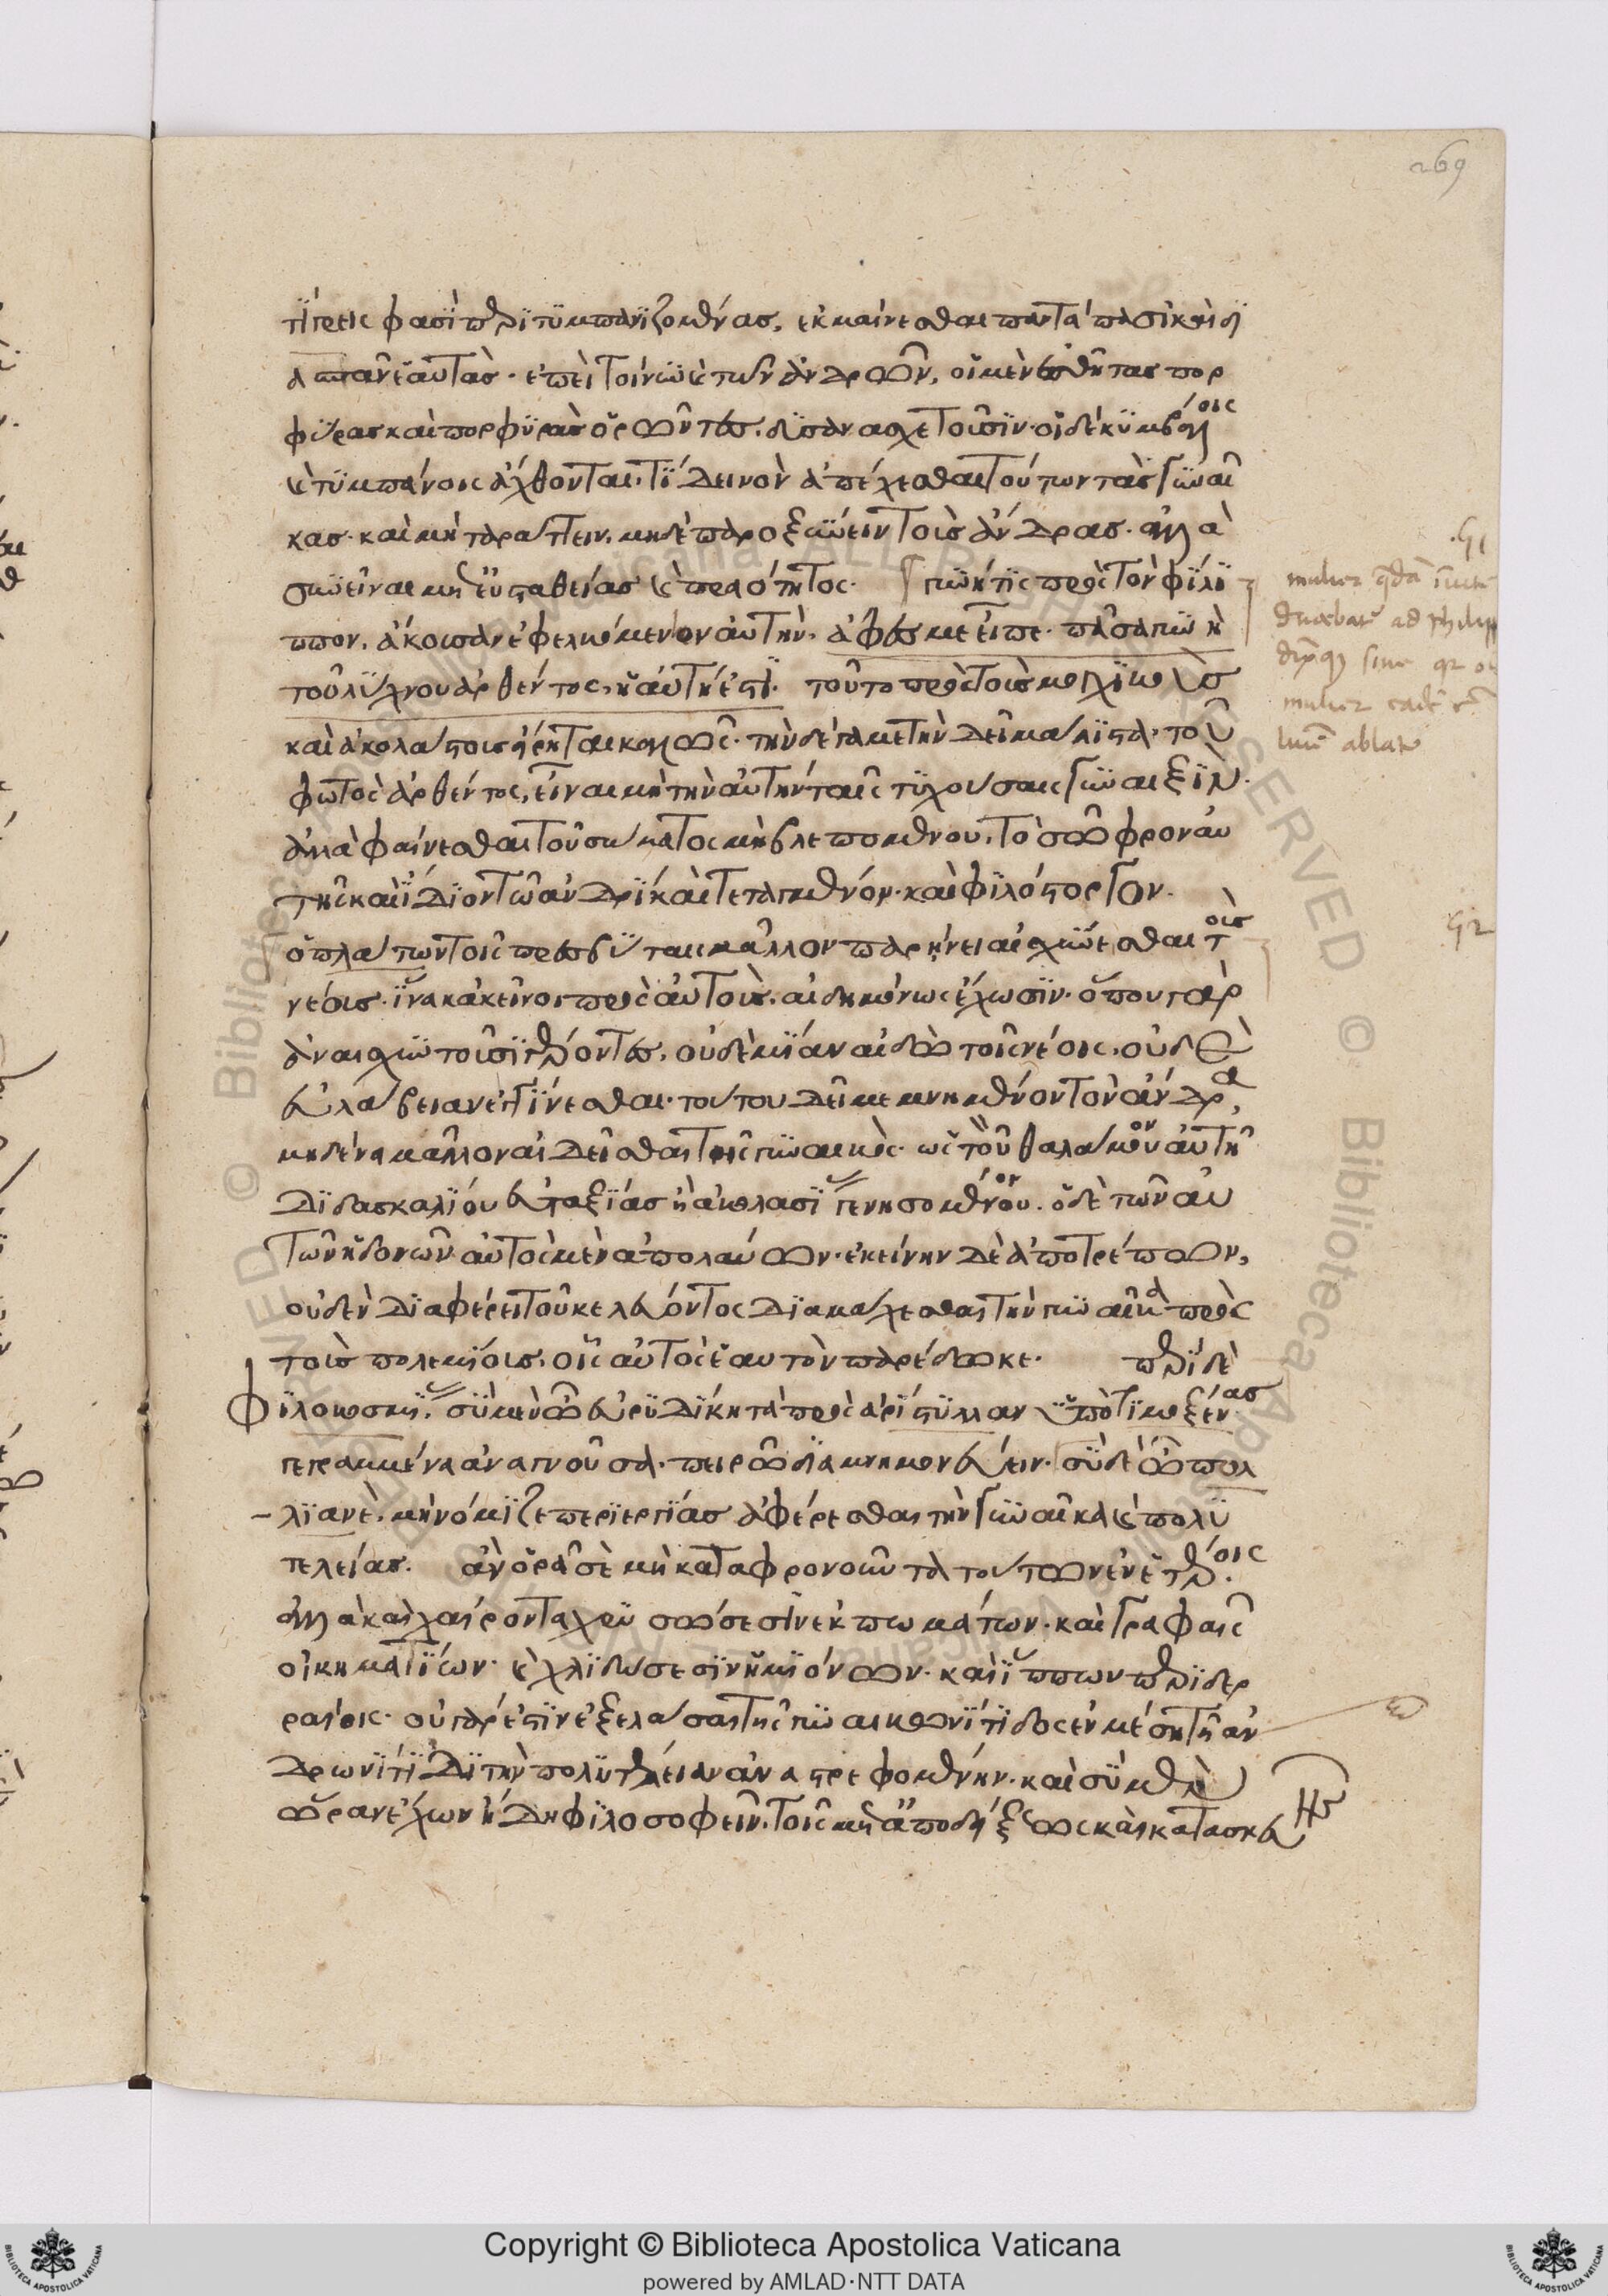 269
τίγρεις φασὶ περιτυμπανιζομένας, ἐκμαίνεσθαι παντάπασι καὶ δι
ασπᾶν ἑαυτάς. ἐπεὶ τοίνυν καὶ τῶν ἀνδρῶν, οἱ μὲν ἐσθῆτας πορ
φυρᾶς καὶ πορφυρᾶς ὁρῶντες, δυσανασχετοῦσιν. οἱ δὲ κυμβάλοις
καὶ τυμπάνοις ἄχθονται, τί δεινὸν ἀπέχεσθαι τούτων τὰς γυναῖ
κας. καὶ μὴ ταράττειν, μηδὲ παροξύνειν τοὺς ἄνδρας. ἀλλὰ
συνεῖναι μετ' εὐσταθείας καὶ πραότητος. γυνή τις πρὸς τὸν φίλι
ππον, ἄκουσαν ἐφελκόμενον αὐτήν, ἄφες με εἶπε. πᾶσα γυνὴ
τοῦ λύχνου ἀρθέντος, ἡ αὐτή ἐστι. τοῦτο πρὸς τοὺς μοιχικοὺς
καὶ ἀκολάστους εἴρηται καλῶς. τὴν δὲ γαμετὴν δεῖ μάλιστα, τοῦ
φωτὸς ἀρθέντος, εἶναι μὴ τὴν αὐτὴν ταῖς τυχούσαις γυναιξίν.
ἀλλὰ φαίνεσθαι τοῦ σώματος μὴ βλεπομένου, τὸ σῶφρον αὐ
τῆς καὶ ἴδιον τῷ ἀνδρὶ καὶ τεταγμένον. καὶ φιλόστοργον.
ὁ πλάτων τοῖς πρεσβύταις μᾶλλον παρῄνει αἰσχύνεσθαι τοὺς
νέους. ἵνα κἀκεῖνοι πρὸς αὐτοὺς, αἰδημόνως ἔχωσιν. ὅπου γὰρ
ἀναισχυντοῦσι γέροντες, οὐδεμίαν αἰδῶ τοῖς νέοις, οὐδὲ
εὐλάβειαν ἐγγίνεσθαι. τούτου δεῖ μεμνημένον τὸν ἄνδρα,
μηδένα μᾶλλον αἰδεῖσθαι τῆς γυναικός. ὡς τὸν θάλαμον αὐτῇ
διδασκαλίου εὐταξίας ἢ ἀκολασίας γενησόμενον. ὁ δὲ τῶν αὐ
τῶν ἡδονῶν αὐτὸς μὲν ἀπολαύων. ἐκείνην δὲ ἀποτρέπων,
οὐδὲν διαφέρει τοῦ κελεύοντος διαμάχεσθαι τὴν γυναῖκα πρὸς
τοὺς πολεμίους, οἷς αὐτὸς ἑαυτὸν παρέδωκε. περὶ δὲ
φιλοκοσμίας, σὺ μὲν ὦ εὐρυδίκη τὰ πρὸς ἀρίστυλλαν ὑπὸ τιμοξένας
γεγραμμένα ἀναγνοῦσα, πειρῶ διαμνημονεύειν. σὺ δὲ ὦ πολ
λιανέ, μὴ νόμιζε περιεργίας ἀφέξεσθαι τὴν γυναῖκα καὶ πολυ
τελείας. ἂν ὁρᾷ σὲ μὴ καταφρονοῦντα τούτων ἐν ἑτέροις.
ἀλλὰ καὶ χαίροντα χρυσώσεσιν ἐκπωμάτων. καὶ γραφαῖς
οἰκηματίων. καὶ χλιδώσεσιν ἡμιόνων. καὶ ἵππων περιδερ
ραίοις. οὐ γάρ ἐστιν ἐξελάσαι τῆς γυναικωνίτιδος ἐν μέσῃ τῇ ἀν
δρωνίτιδι τὴν πολυτέλειαν ἀναστρεφομένην. καὶ σὺ μὲν
ὥραν ἔχων ἤδη φιλοσοφεῖν, τοῖς μετ' ἀποδείξεως καὶ κατασκευ
91
mulier
ad philipp
mulier
ablato
92